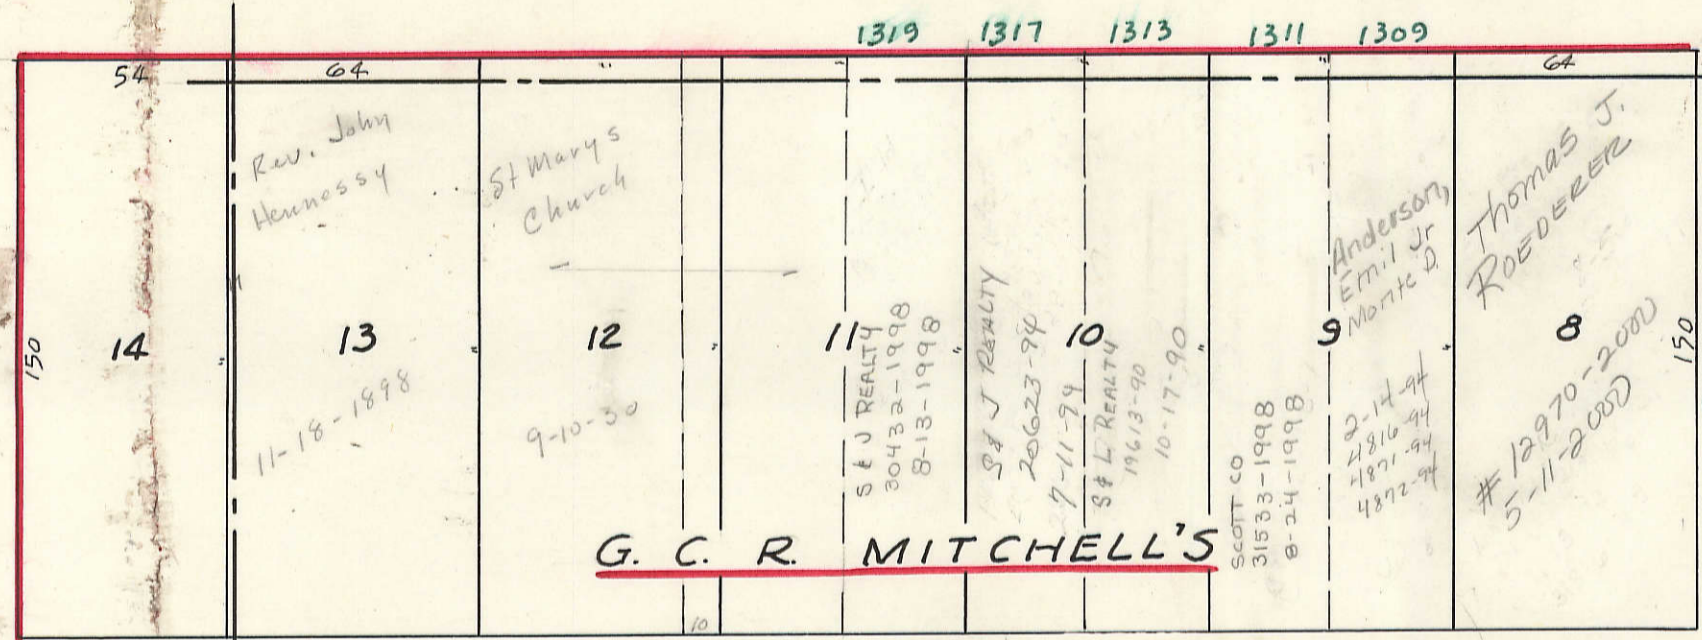 1319 1317 1313 1311 1309
54 64 64
Rev. John
Hennessy
11-18-1898
St Marys
Church
9-10-30
S & J REALTY
30432-1998
8-13-1998
S & J REALTY
20623-94
7-11-94
S & L REALTY
19613-90
10-17-90
SCOTT CO
31533-1998
8-24-1998
Anderson,
Emil Jr
Monte D.
2-14-94
4816-94
4871-94
4872-94
Thomas J.
ROEDERER
# 12970-2000
5-11-2000
150 14 13 12 11 10 9 8 150
G. C. R. MITCHELL'S
10